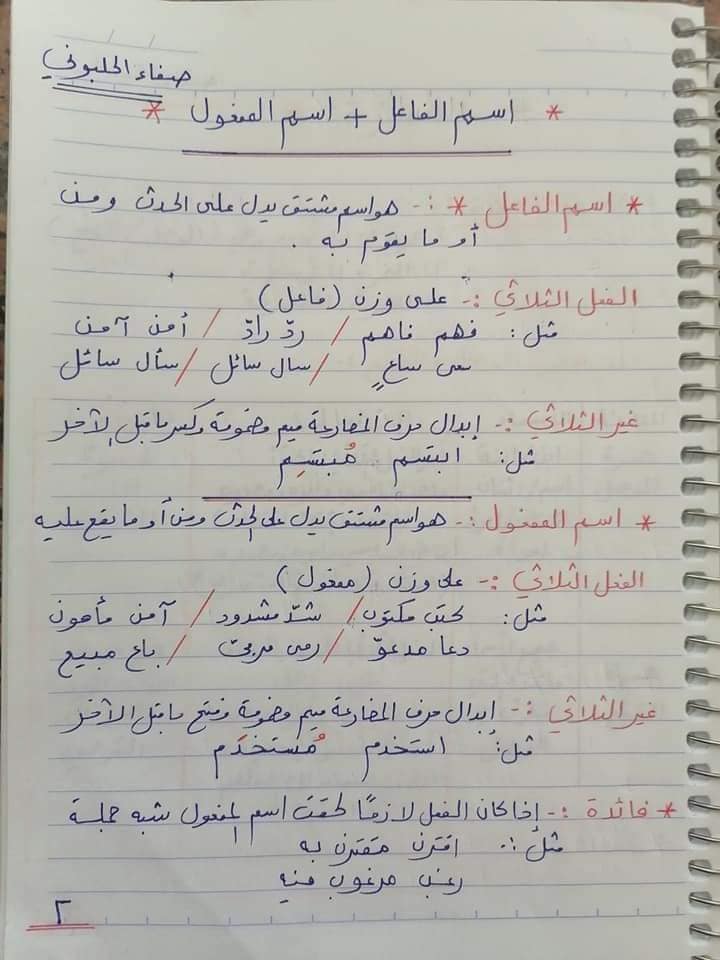 صفاء الحلبوني
* اسم الفاعل + اسم المفعول *
* اسم الفاعل * :- هو اسم مشتق يدل على الحدث ومن
أو ما يقوم به .
الفعل الثلاثي :- على وزن (فاعل)
مثل : فهم فاهم / ردّ رادّ / أمن آمن
سعى ساعٍ / سال سائل / سأل سائل
غير الثلاثي :- إبدال حرف المضارعة ميم مضمومة وكسر ما قبل الآخر
مثل : ابتسم مُبتسِم
* اسم المفعول :- هو اسم مشتق يدل على الحدث ومن أو ما يقع عليه
الفعل الثلاثي :- على وزن (مفعول)
مثل : كتب مكتوب / شدّ مشدود / آمن مأمون
دعا مدعوّ / رمى مرميّ / باع مبيع
غير الثلاثي :- إبدال حرف المضارعة ميم مضمومة وفتح ما قبل الآخر
مثل : استخدم مُستخدَم
* فائدة :- إذا كان الفعل لازمًا لحقت اسم المفعول شبه جملة
مثل :- اقترن مقترن به
رغب مرغوب فيه
٢